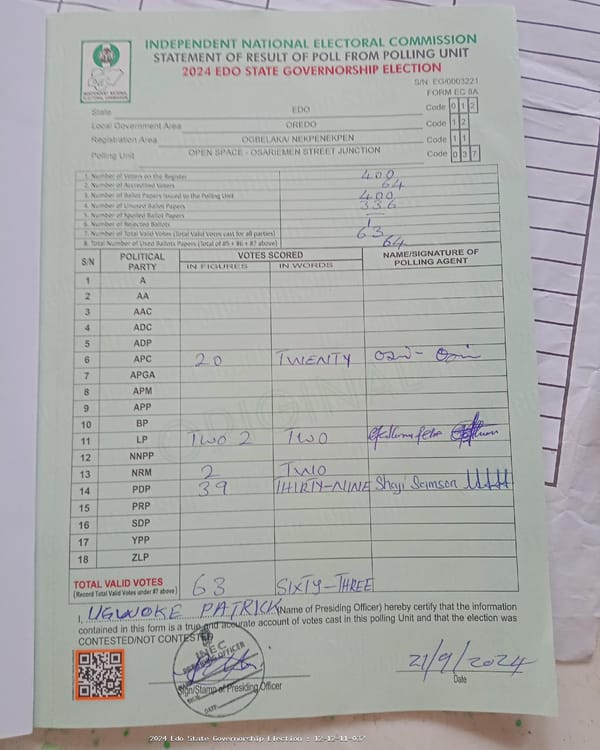 INDEPENDENT NATIONAL ELECTORAL COMMISSION
STATEMENT OF RESULT OF POLL FROM POLLING UNIT
2024 EDO STATE GOVERNORSHIP ELECTION
S/N: EG/0003221
FORM EC 8A
State EDO Code 0 1 2
Local Government Area OREDO Code 1 2
Registration Area OGBELAKA/ NEKPENEKPEN Code 1 1
Polling Unit OPEN SPACE - OSARIEMEN STREET JUNCTION Code 0 3 7
1. Number of Voters on the Register 400
2. Number of Accredited Voters 64
3. Number of Ballot Papers Issued to the Polling Unit 400
4. Number of Unused Ballot Papers 336
5. Number of Spoiled Ballot Papers
6. Number of Rejected Ballots 1
7. Number of Total Valid Votes (Total Valid Votes cast for all parties) 63
8. Total Number of Used Ballots Papers (Total of #5 + #6 + #7 above) 64
S/N POLITICAL PARTY VOTES SCORED NAME/SIGNATURE OF POLLING AGENT
IN FIGURES IN WORDS
1 A
2 AA
3 AAC
4 ADC
5 ADP
6 APC 20 TWENTY
7 APGA
8 APM
9 APP
10 BP
11 LP TWO 2 TWO
12 NNPP
13 NRM 2 TWO
14 PDP 39 THIRTY-NINE Shaji Samson
15 PRP
16 SDP
17 YPP
18 ZLP
TOTAL VALID VOTES 63 SIXTY-THREE
(Record Total Valid Votes under #7 above)
I, UGWOKE PATRICK (Name of Presiding Officer) hereby certify that the information
contained in this form is a true and accurate account of votes cast in this polling Unit and that the election was
CONTESTED/NOT CONTESTED
INEC
PRESIDING OFFICER
DATE
21/9/2024
Sign/Stamp of Presiding Officer Date
ORIGINAL
2024 Edo State Governorship Election : 12-12-11-037